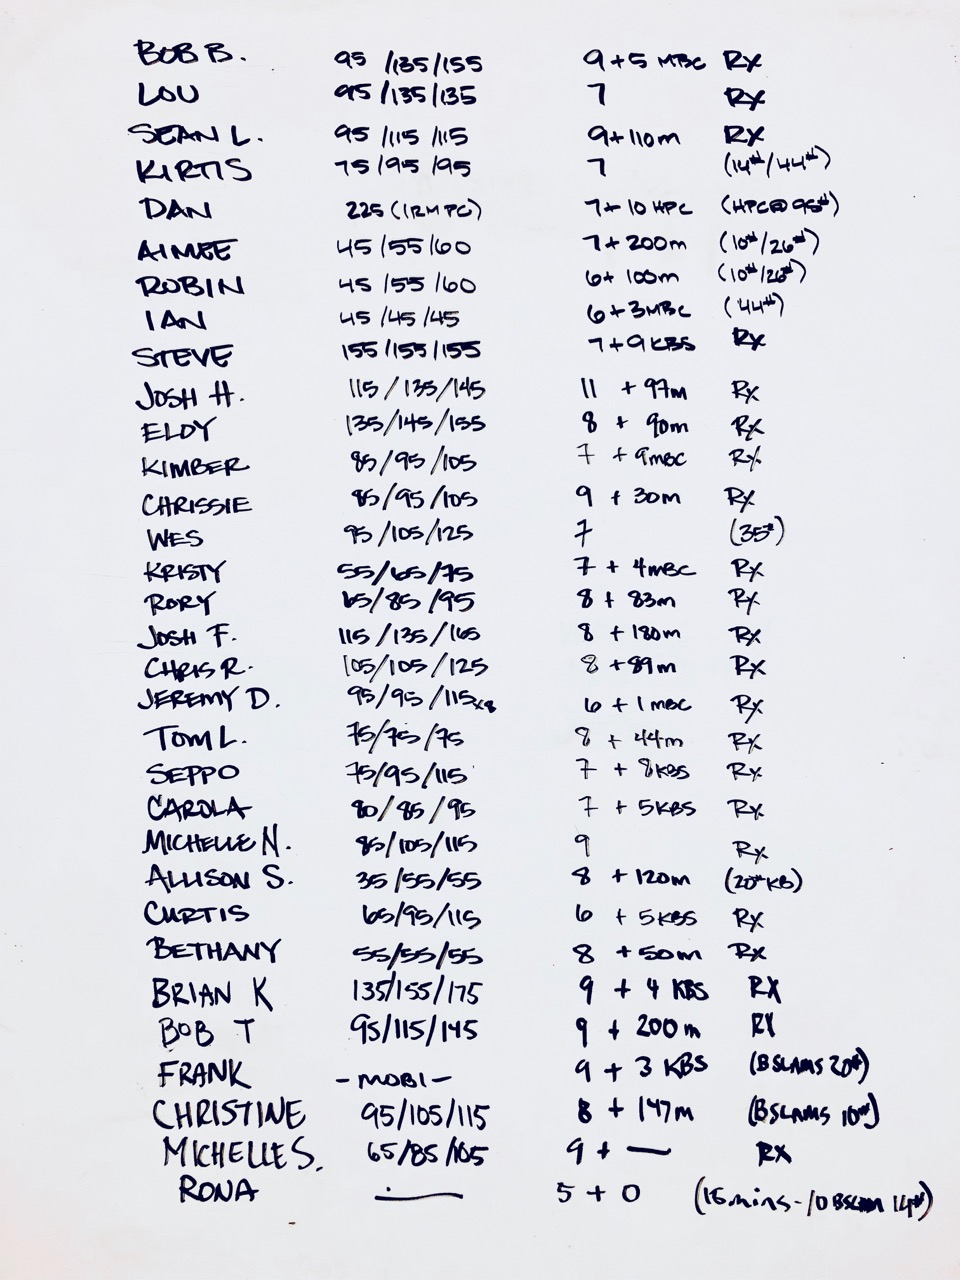 BOB B. 95 /135/155 9+5 MBC Rx
LOU 95/135/135 7 Rx
SEAN L. 95 /115 /115 9+110m Rx
KIRTIS 75/95/95 7 (14#/44#)
DAN 225 (1RM PC) 7+10 HPC (HPC@95#)
AIMEE 45/55/60 7+200m (10#/26#)
ROBIN 45/55/60 6+100m (10#/26#)
IAN 45/45/45 6+3MBC (44#)
STEVE 155/155/155 7+9KBS Rx
JOSH H. 115/135/145 11 + 97m Rx
ELOY 135/145/155 8 + 90m Rx
KIMBER 85/95/105 7 + 9MBC Rx
CHRISSIE 85/95/105 9 + 30m Rx
WES 95/105/125 7 (35#)
KRISTY 55/65/75 7 + 4MBC Rx
RORY 65/85/95 8 + 83m Rx
JOSH F. 115/135/165 8 + 180m Rx
CHRIS R. 105/105/125 8 +89m Rx
JEREMY D. 95/95/115 6 + 1MBC Rx
TOM L. 75/75/75 8 + 44m Rx
SEPPO 75/95/115 7 + 8KBS Rx
CAROLA 80/85/95 7 + 5KBS Rx
MICHELLE N. 85/105/115 9 Rx
ALLISON S. 35/55/55 8 + 120m (20#KB)
CURTIS 65/95/115 6 + 5KBS Rx
BETHANY 55/55/55 8 + 50m Rx
BRIAN K 135/155/175 9 + 4 KBS RX
BOB T 95/115/145 9 + 200m RX
FRANK - MOBI - 9 + 3 KBS (BSLAMS 20#)
CHRISTINE 95/105/115 8 + 147m (BSLAMS 10#)
MICHELLE S. 65/85/105 9 + — RX
RONA — 5 + 0 (15mins - 10 BSLAM 14#)